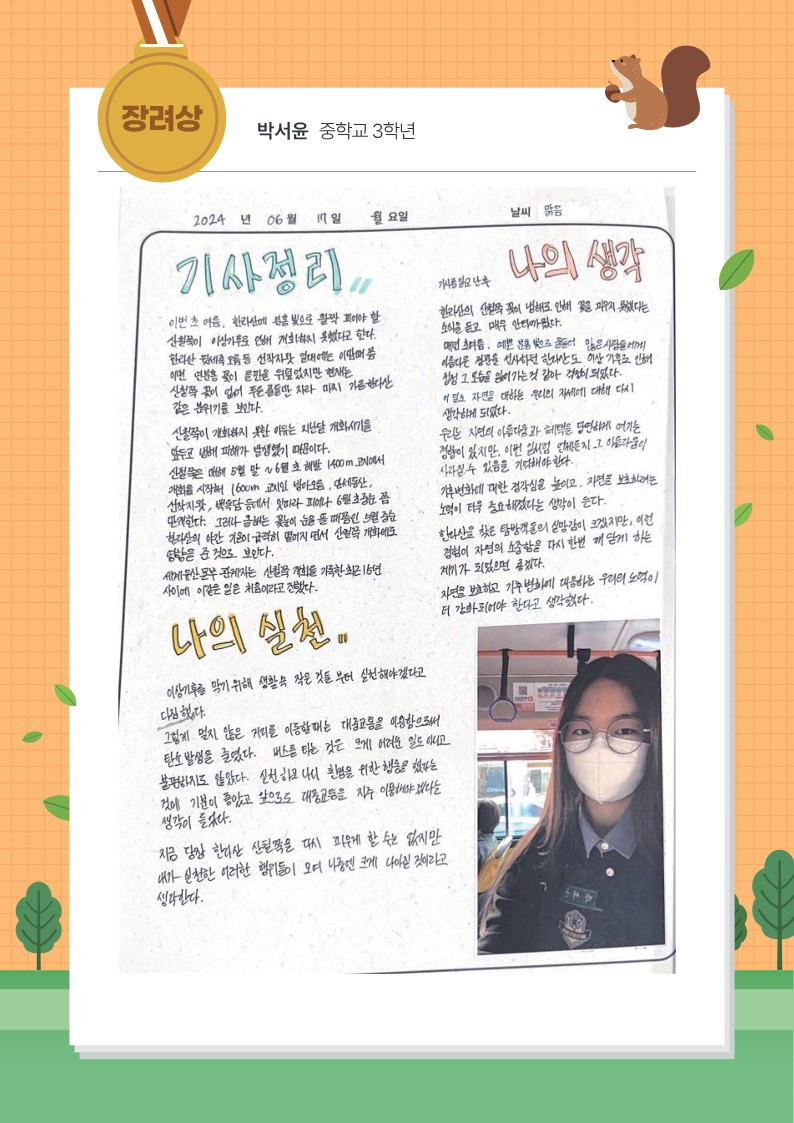 장려상
박서윤 중학교 3학년
2024 년 06월 17일 월요일
날씨 맑음
기사정리
이번 초 여름, 한라산에 분홍 빛으로 활짝 피어야 할
산철쭉이 이상기후로 인해 개화하지 못했다고 한다.
한라산 윗세족은오름 등 선작지왓 일대에는 이맘때 쯤
이면 연분홍 꽃이 들판을 뒤덮었지만 현재는
산철쭉 꽃이 없어 푸른 풀들만 자라 마치 가을한라산
같은 분위기를 보인다.
산철쭉이 개화하지 못한 이유는 지난달 개화시기를
앞두고 냉해 피해가 발생했기 때문이다.
산철쭉은 매해 5월 말 ~ 6월 초 해발 1400m 고지에서
개화를 시작해 1600m 고지인 방아오름, 윗세동산,
선작지왓, 백록담 등에서 잇따라 피어나 6월 초중순 쯤
만개한다. 그러나 올해는 꽃눈이 눈을 뜰 때쯤인 5월 중순
한라산의 야간 기온이 급격히 떨어지면서 산철쭉 개화에도
영향을 준 것으로 보인다.
세계유산본부 관계자는 산철쭉 개화를 기록한 최근 16년
사이에 이같은 일은 처음이라고 전했다.
나의 실천
이상기후를 막기 위해 생활 속 작은 것들 부터 실천해야겠다고
다짐했다.
그렇게 멀지 않은 거리를 이동할때는 대중교통을 이용함으로써
탄소 발생을 줄였다. 버스를 타는 것은 크게 어려운 일도 아니고
불편하지도 않았다. 실천하고 나니 환경을 위한 행동을 했다는
것에 기분이 좋았고 앞으로도 대중교통을 자주 이용해야겠다는
생각이 들었다.
지금 당장 한라산 산철쭉을 다시 피우게 할 수는 없지만
내가 실천한 이러한 행위들이 모여 나중엔 크게 나아질 것이라고
생각한다.
기사를 읽고 난 후 나의 생각
한라산의 산철쭉 꽃이 냉해로 인해 꽃을 피우지 못했다는
소식을 듣고 매우 안타까웠다.
매년 초여름, 예쁜 분홍 빛으로 물들어 많은사람들에게
아름다운 절경을 선사하던 한라산도 이상 기후로 인해
점점 그 모습을 잃어가는것 같아 걱정이 되었다.
이 일로 자연을 대하는 우리의 자세에 대해 다시
생각하게 되었다.
우리는 자연의 아름다움과 혜택을 당연하게 여기는
경향이 있지만, 이번 일처럼 언제든지 그 아름다움이
사라질 수 있음을 기억해야 한다.
기후변화에 대한 경각심을 높이고, 자연을 보호하려는
노력이 더욱 중요해졌다는 생각이 든다.
한라산을 찾은 탐방객들의 실망감이 크겠지만, 이런
경험이 자연의 소중함을 다시 한번 깨 닫게 하는
계기가 되었으면 좋겠다.
자연을 보호하고 기후변화에 대응하는 우리의 노력이
더 강화되어야 한다고 생각했다.